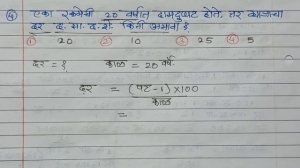 ④ एका रकमेची 20 वर्षात दामदुप्पट होते. तर व्याजाचा
दर द. सा. द. शे. किती असावा ?
① 20 ② 10 ③ 25 ④ 5
दर = ? काळ = 20 वर्षे.
दर = (पट - 1) × 100
काळ
=